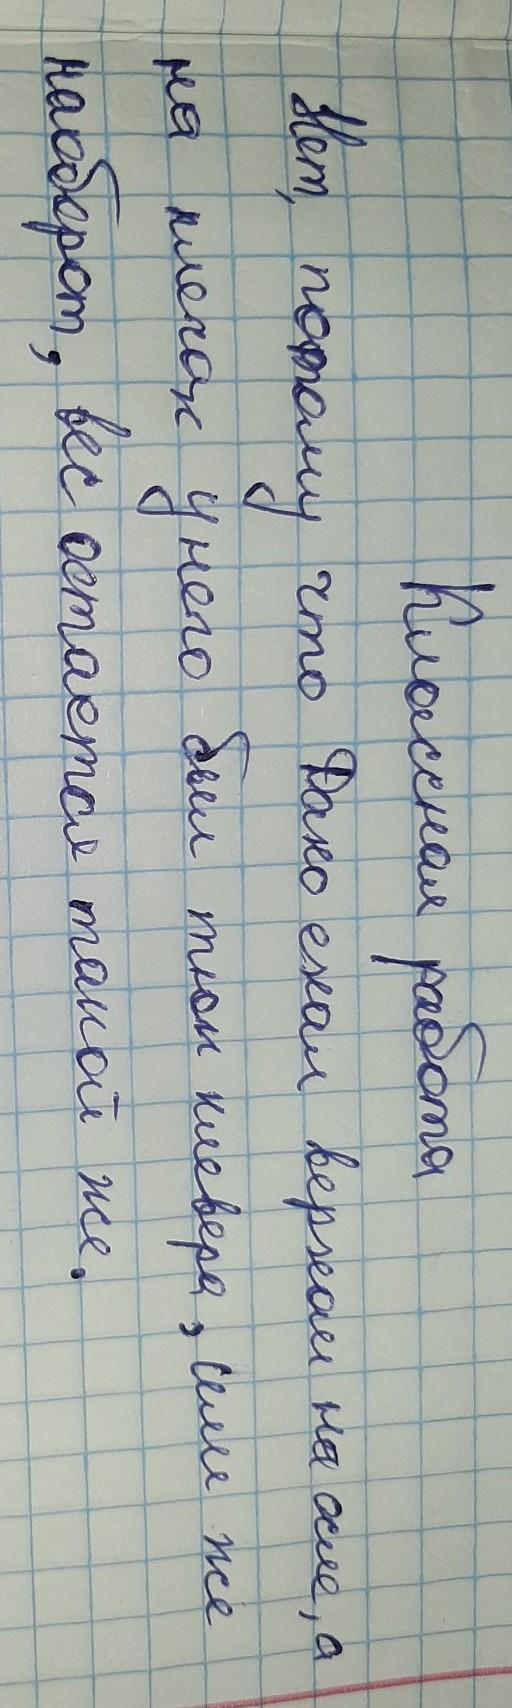 Классная работа
Нет, потому что Дако ехал верхом на осле, а
на плечах у него был тюк клевера, если же
наоборот, вес остается такой же.